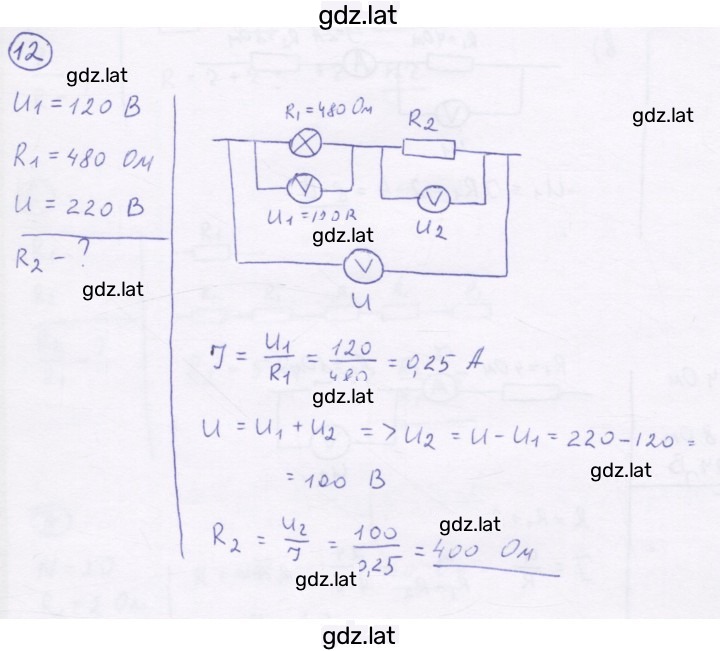 gdz.lat
12
gdz.lat
U₁ = 120 В
R₁ = 480 Ом
U = 220 В
R₂ - ?
gdz.lat
R₁ = 480 Ом
R₂
gdz.lat
V
V
U₁ = 120 В
U₂
gdz.lat
V
U
J = U₁/R₁ = 120/480 = 0,25 А
gdz.lat
U = U₁ + U₂ => U₂ = U - U₁ = 220 - 120 =
gdz.lat
= 100 В
gdz.lat
R₂ = U₂/J = 100/0,25 = 400 Ом
gdz.lat
gdz.lat